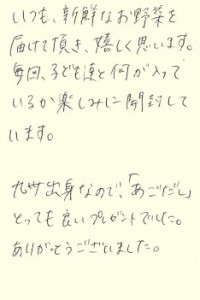 いつも、新鮮なお野菜を
届けて頂き、嬉しく思います。
毎回、子ども達と何が入って
いるか楽しみに開封して
います。
九州出身なので、「あごだし」
とっても良いプレゼントでした。
ありがとうございました。